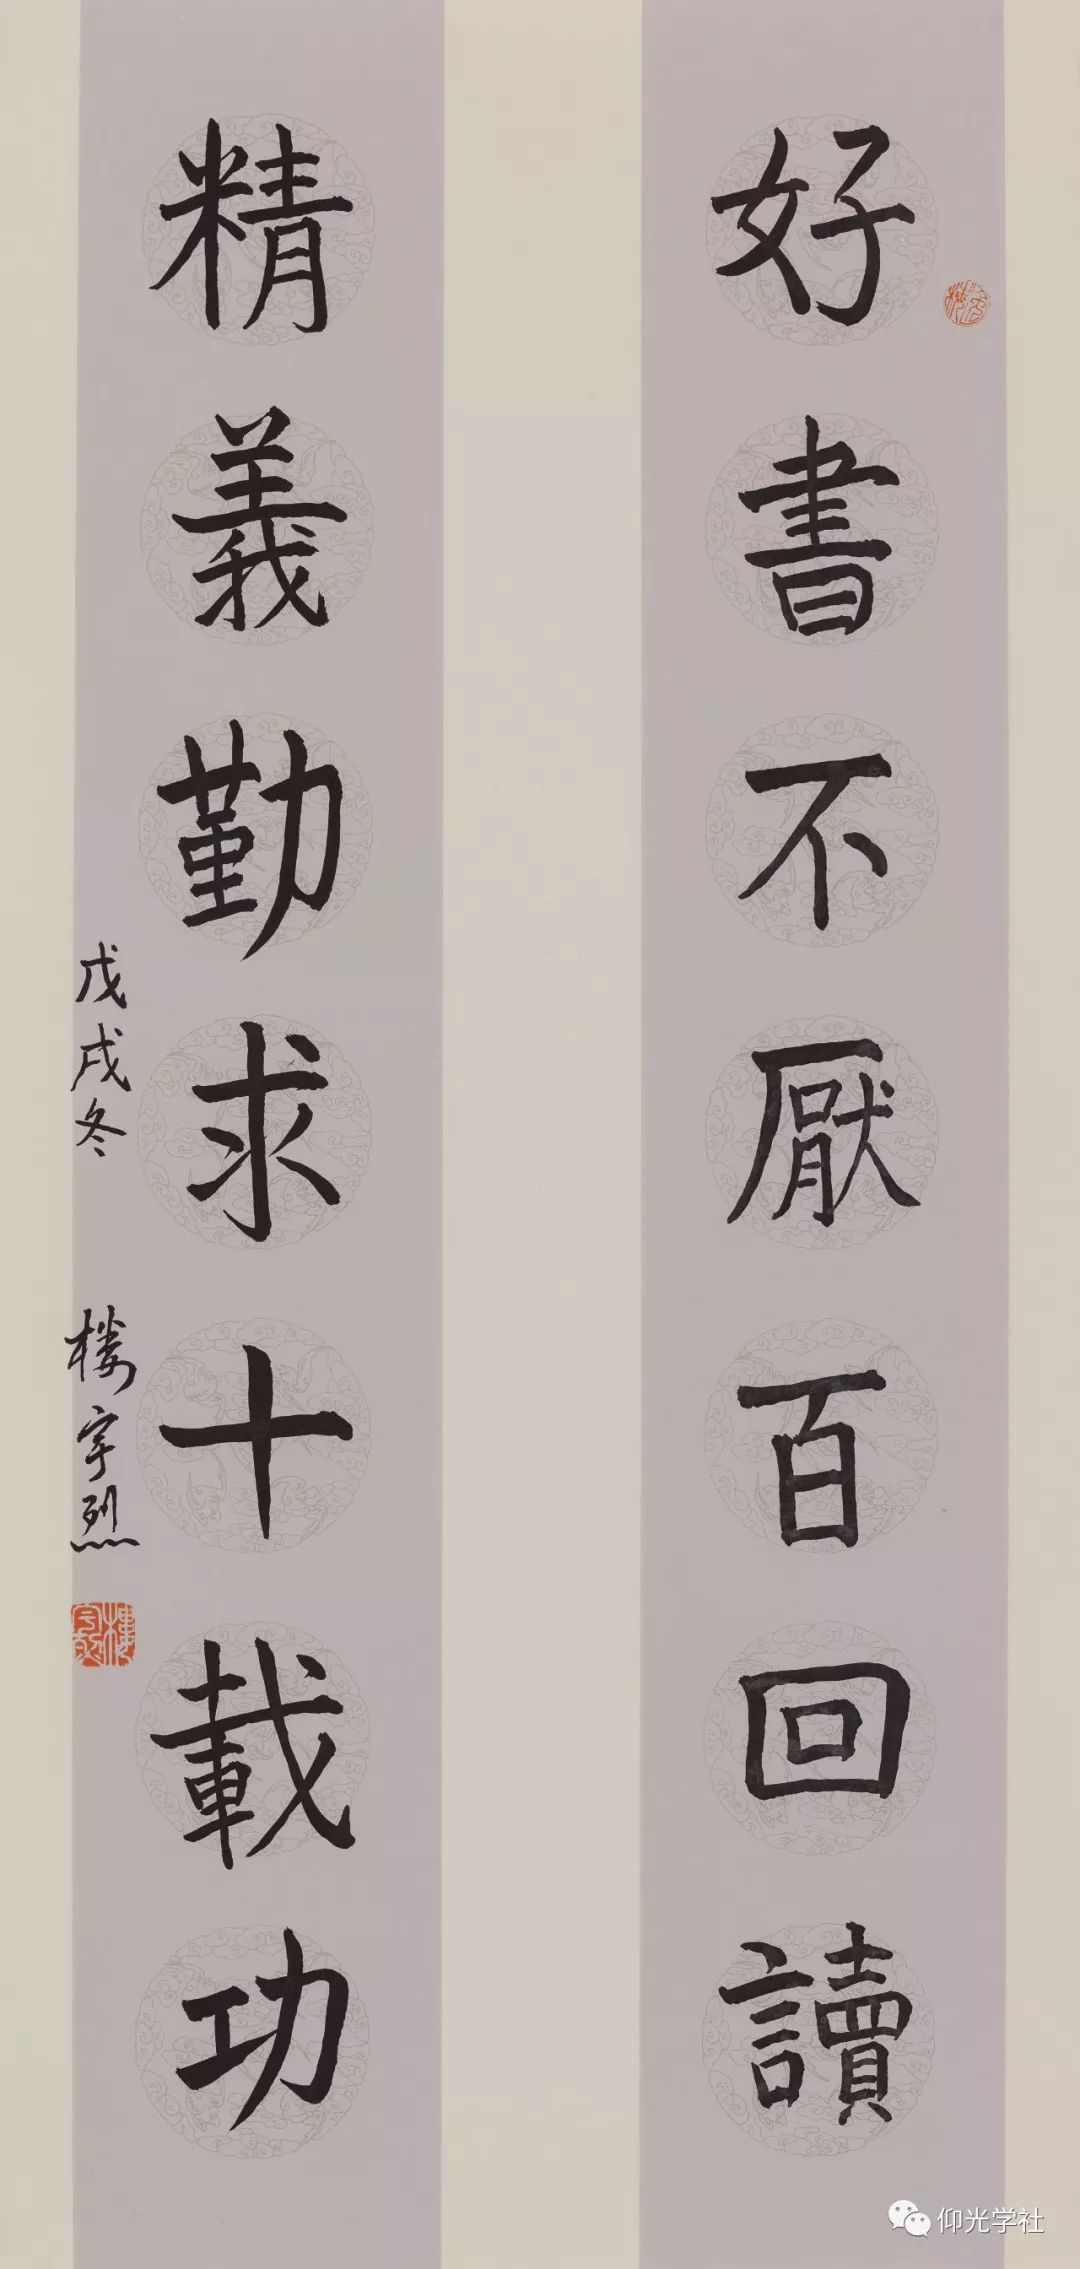 好書不厭百回讀
精義勤求十載功
戊戌冬 楼宇烈
仰光学社